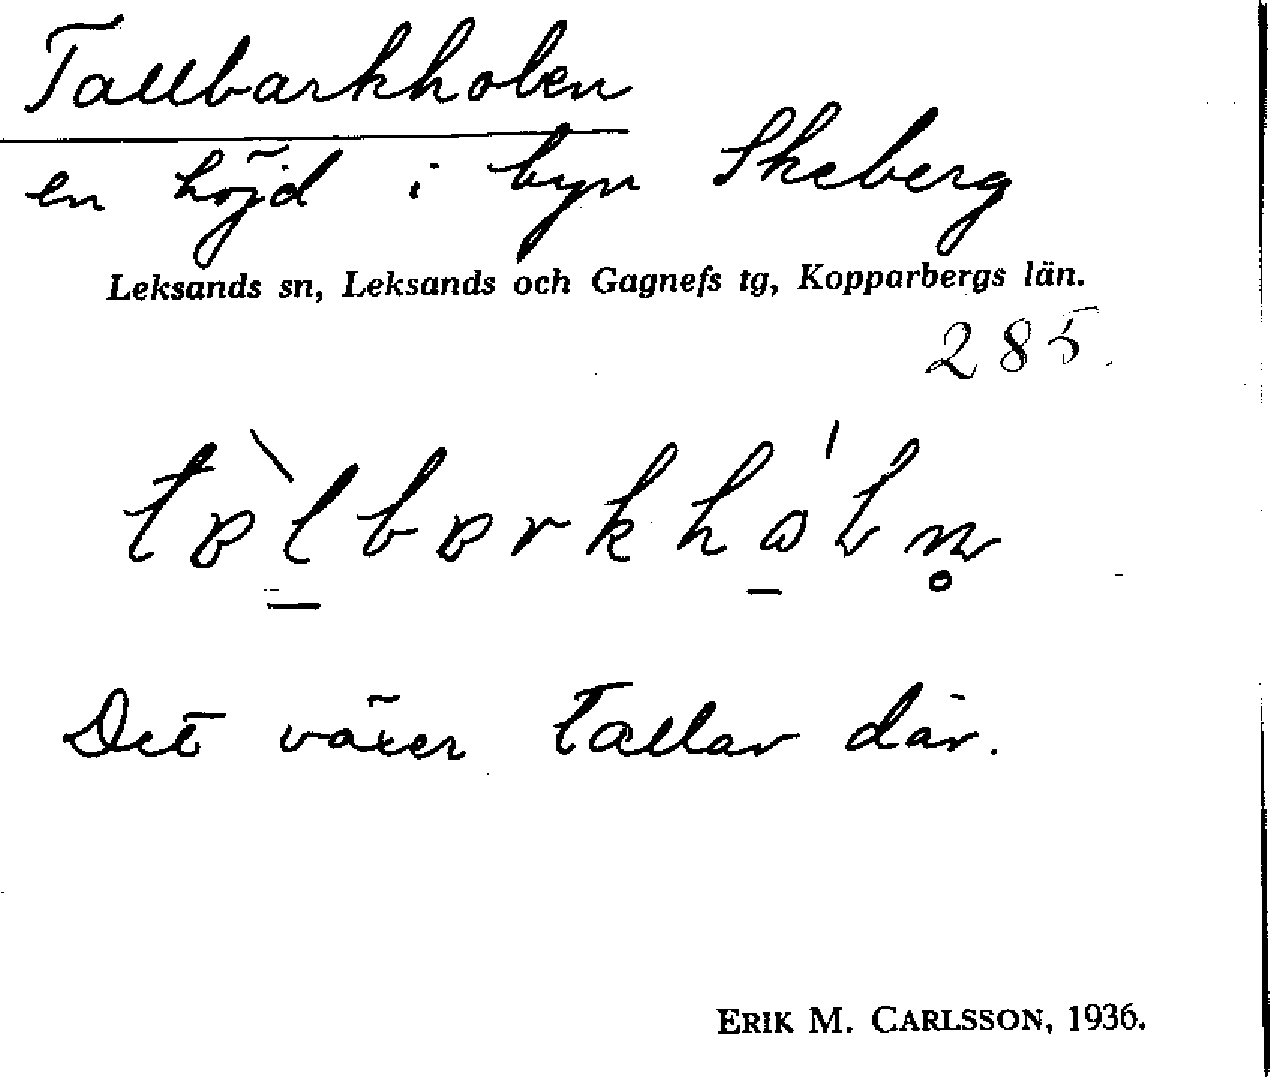 Tallbarkholen
en höjd i byn Skeberg
Leksands sn, Leksands och Gagnefs tg, Kopparbergs län.
285.
Det växer tallar där.
ERIK M. CARLSSON, 1936.